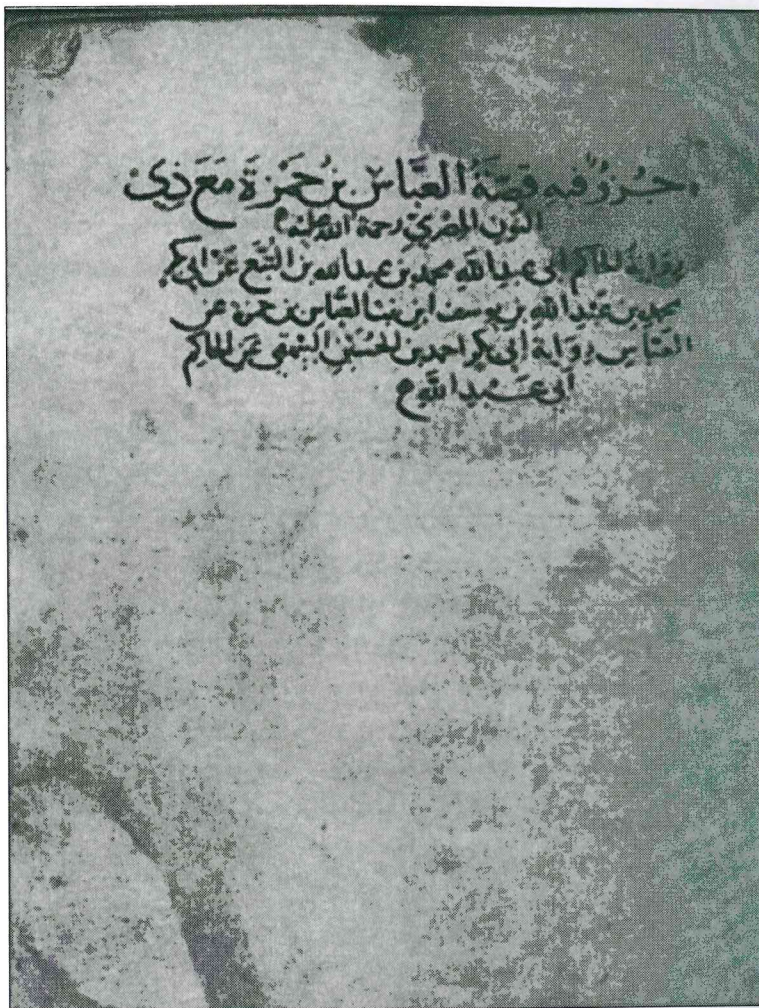 جُزْءٌ فيهِ قصَّةُ العَبَّاس بن حَمْزَةَ مَعَ ذِي
النون المصْرِيّ رحمة الله عليه
روَايةُ الحاكم أبي عبد الله محمد بن عبد الله بن البَيِّع عَنْ أبي بكر
محمد بن عبد الله بن يوسف ابن بنت العبَّاس بن حمزة عن
العبَّاس روَاية أبي بكر احمد بن الحُسَين البيهقي عن الحاكم
أبي عَبْد الله